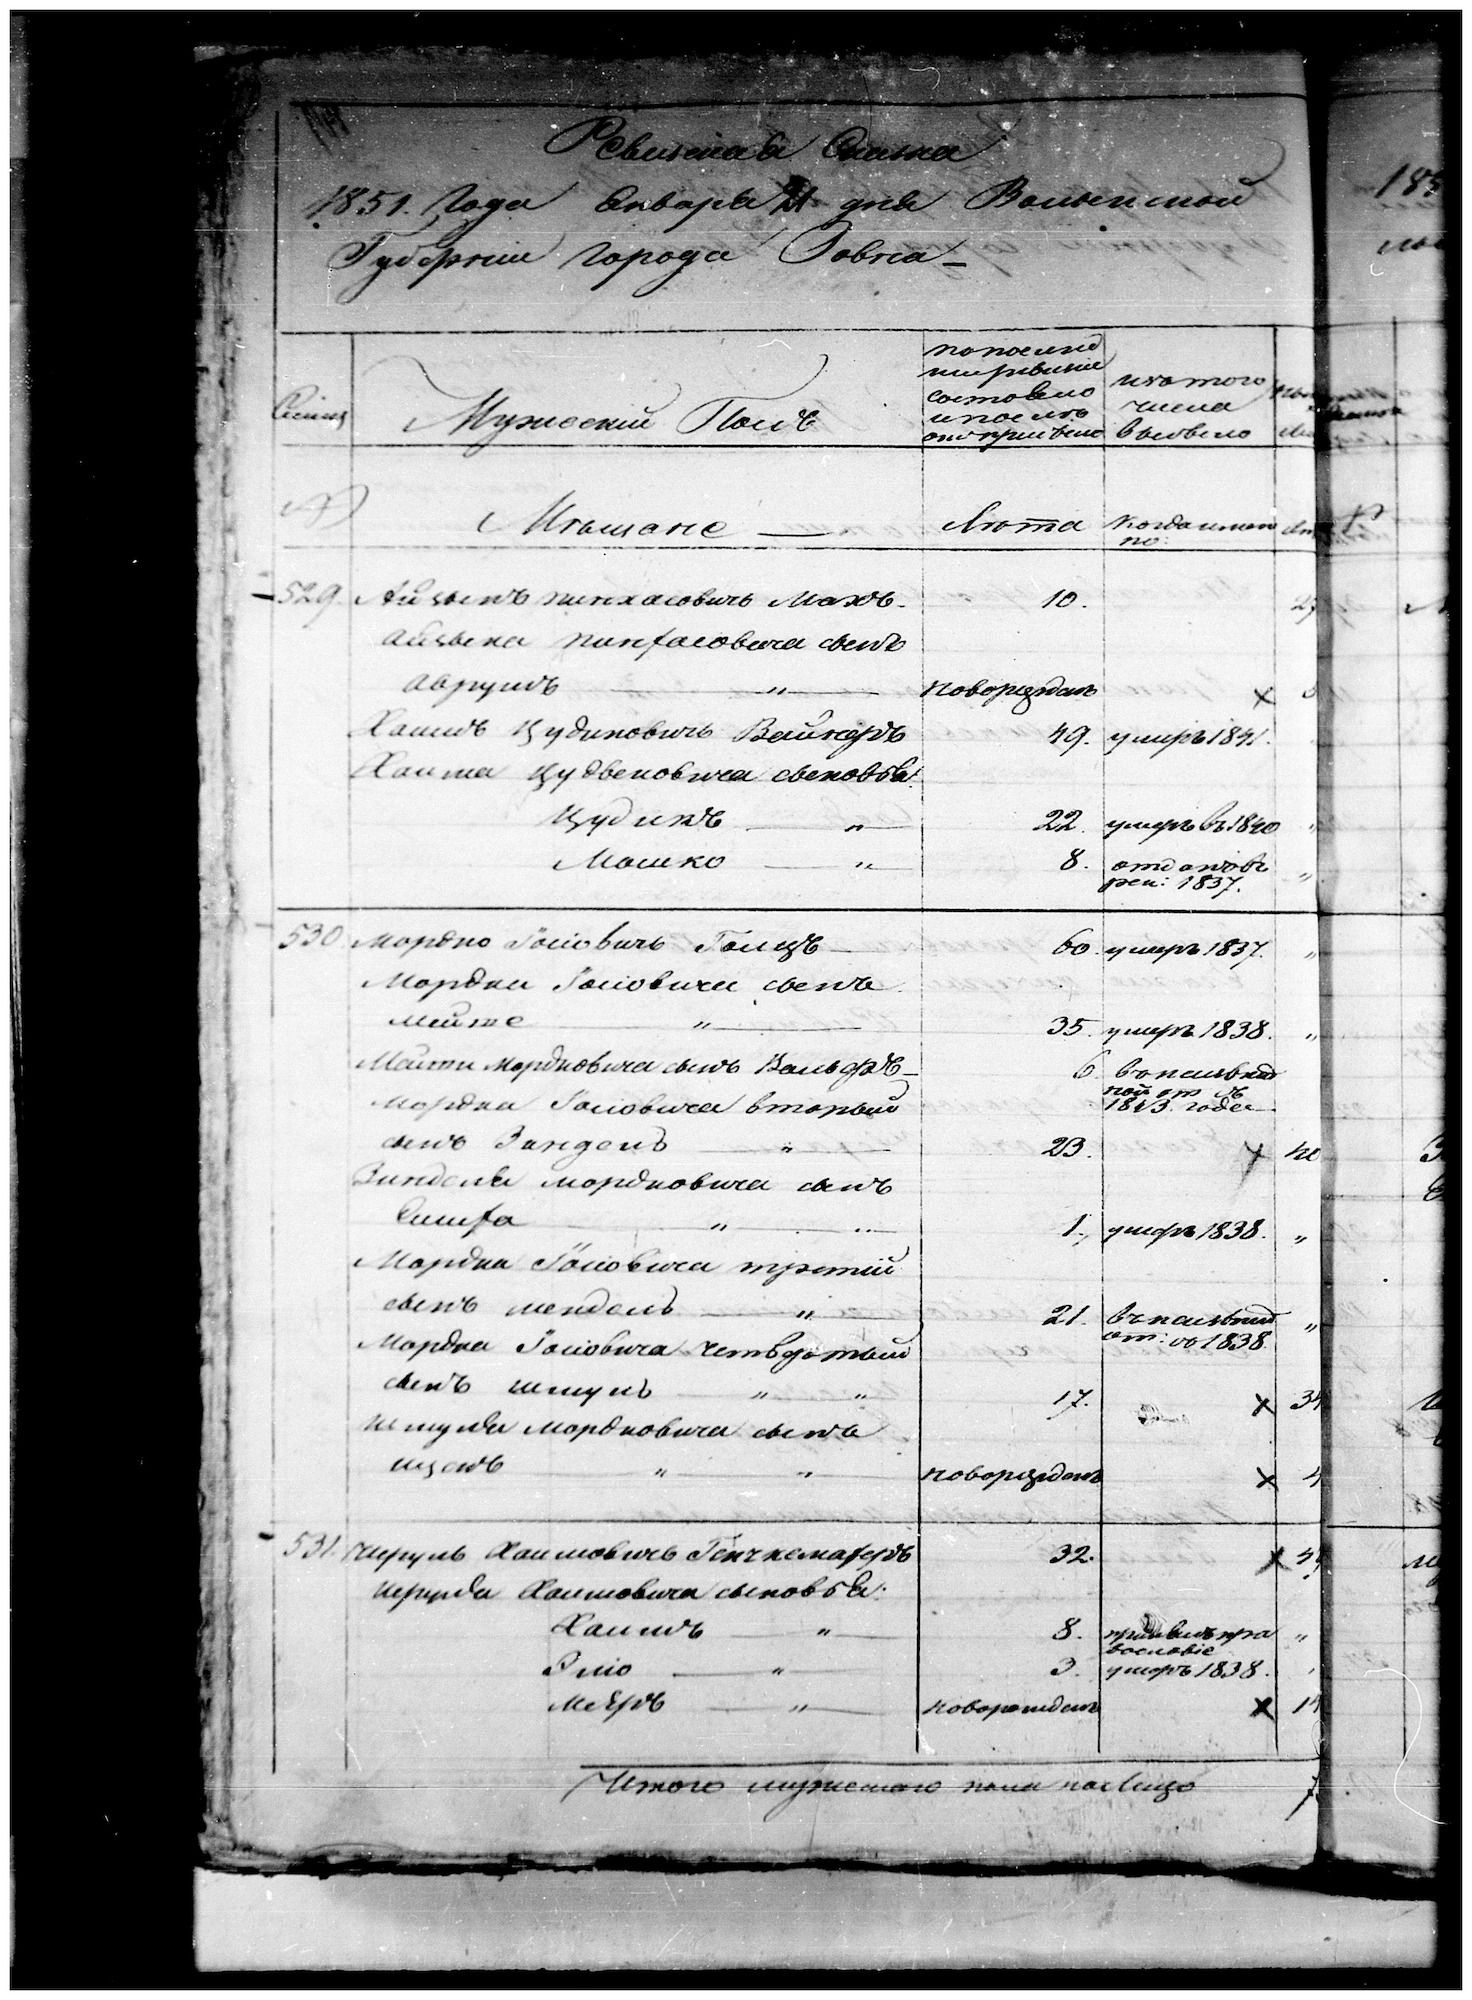 Ревизская Сказка
1851. Года Января 21 дня Волынской
Губерніи города Ровна
Семьи
Мужеский Полъ
по послед
ней ревизіи
состояло
и после
оной прибыло
изъ того
числа
выбыло
№
Мѣщане
Лѣта
Когда имен
но:
529. Айзыкъ Пинхасовичь Махъ 10.
Айзыка Пинхасовича сынъ
Аврумъ " новорожденъ x
Хаимъ Цудиковичь Вайнеръ 49. умеръ 1841.
Хаима сыновья:
Цудикъ " 22. умеръ въ 1840 "
Мошко " 8. отданъ въ
рек: 1837. "
530 Мордко Іосіовичь Голцъ 60. умеръ 1837. "
Мордка Іосіовича сынъ
Мейте " 35. умеръ 1838. "
Мейти Мордковича сынъ Вольфъ 6.
1843 года
Мордка Іосіовича вторый
сынъ Зинделъ " 23. x 40
Зинделя Мордковича сынъ
Симха " " 1. умеръ 1838. "
Мордка Іосіовича третій
сынъ Мендель " 21. "
от: въ 1838
Мордка Іосіовича четвертый
сынъ Шмуль " " 17. x 34
Шмуля Мордковича сынъ
Ицекъ " " новорожденъ x
531. Шруль Хаимовичь 32. x
Шруля Хаимовича сыновья:
Хаимъ " 8. принялъ пра
вославіе "
Элio " 3. умеръ 1838.
Меэръ " новорожденъ x
Итого мужескаго пола на лицо